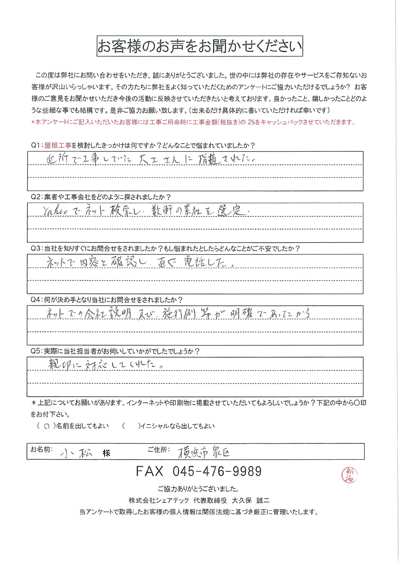 お客様のお声をお聞かせください
この度は弊社にお問い合わせをいただき、誠にありがとうございました。世の中には弊社の存在やサービスをご存知ないお
客様が沢山いらっしゃいます。その方たちに弊社をよく知っていただくためのアンケートにご協力いただけるでしょうか？ お客
様のご意見をお聞かせいただき今後の活動に反映させていただきたいと考えております。良かったこと、嬉しかったことどのよ
うな些細な事でも結構です。是非ご協力お願い致します。(出来るだけ具体的に書いていただければ幸いです)
*本アンケートにご記入いただいたお客様には工事ご用命時に工事金額(税抜き)の 2%をキャッシュバックさせていただきます。
Q1：屋根工事を検討したきっかけは何ですか？どんなことで悩まれていましたか？
近所で工事していた 大工さんに指摘された。
Q2：業者や工事会社をどのように探されましたか？
Yahooでネット検索し、数軒の業社を選定。
Q3：当社を知りすぐにお問合せをされましたか？もし悩まれたとしたらどんなことがご不安でしたか？
ネットで内容を確認し、直ぐ電話した。
Q4：何が決め手となり当社にお問合せをされましたか？
ネットでの会社説明及び 施行例等が明確であったから
Q5：実際に当社担当者がお伺いしていかがでしたでしょうか？
親切に対応してくれた。
＊上記についてお願いがあります。インターネットや印刷物に掲載させていただいてもよろしいでしょうか？下記の中から〇印
をお付下さい。
( 〇 )名前を出してもよい ( )イニシャルなら出してもよい
お名前: 小松 様 ご住所: 横浜市 泉区
FAX 045-476-9989
ご協力ありがとうございました。
株式会社シェアテック 代表取締役 大久保 誠二
当アンケートで取得したお客様の個人情報は関係法規に基づき厳正に管理いたします。